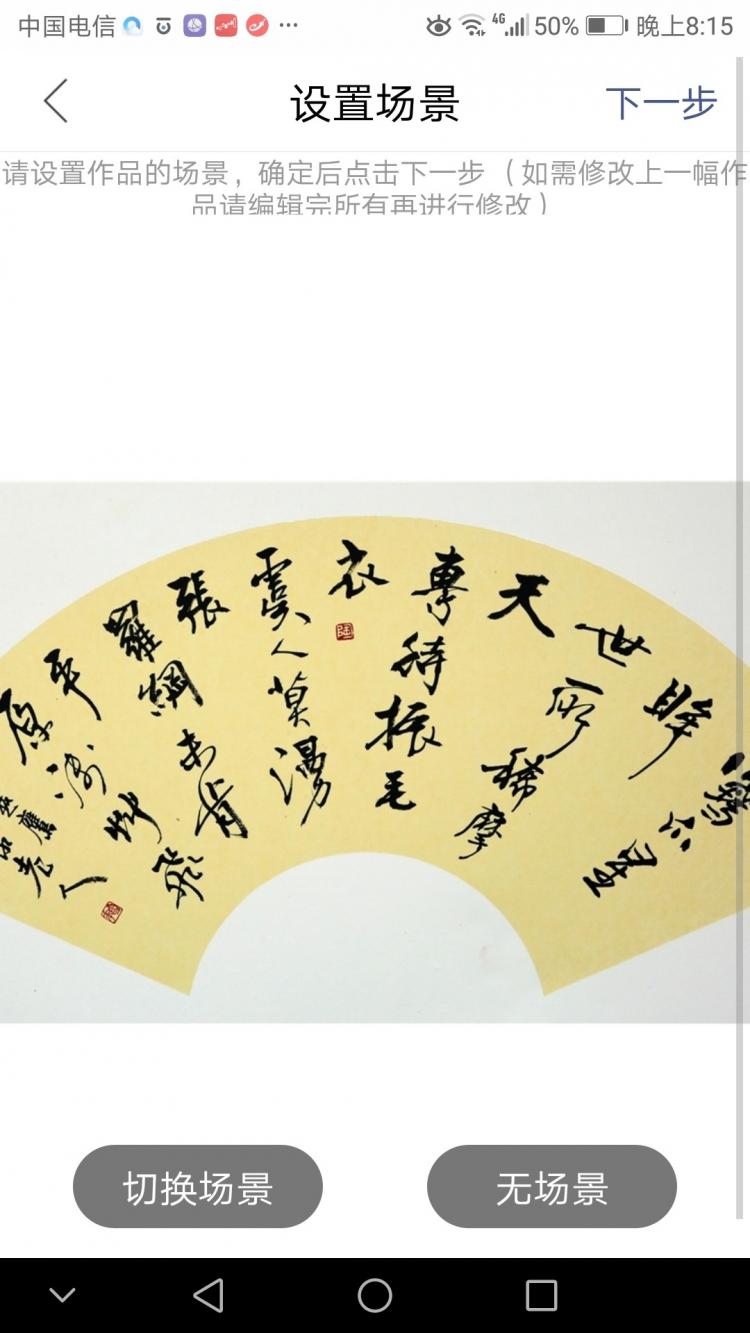 中国电信 4G 50% 晚上8:15
设置场景
下一步
请设置作品的场景，确定后点击下一步（如需修改上一幅作
品请编辑完所有再进行修改）
爪星
眸
世所稀摩
天
專待振毛
衣
虞人莫漫
張
羅網未肯
平
原
淺草飛
鷹
老人
切换场景
无场景